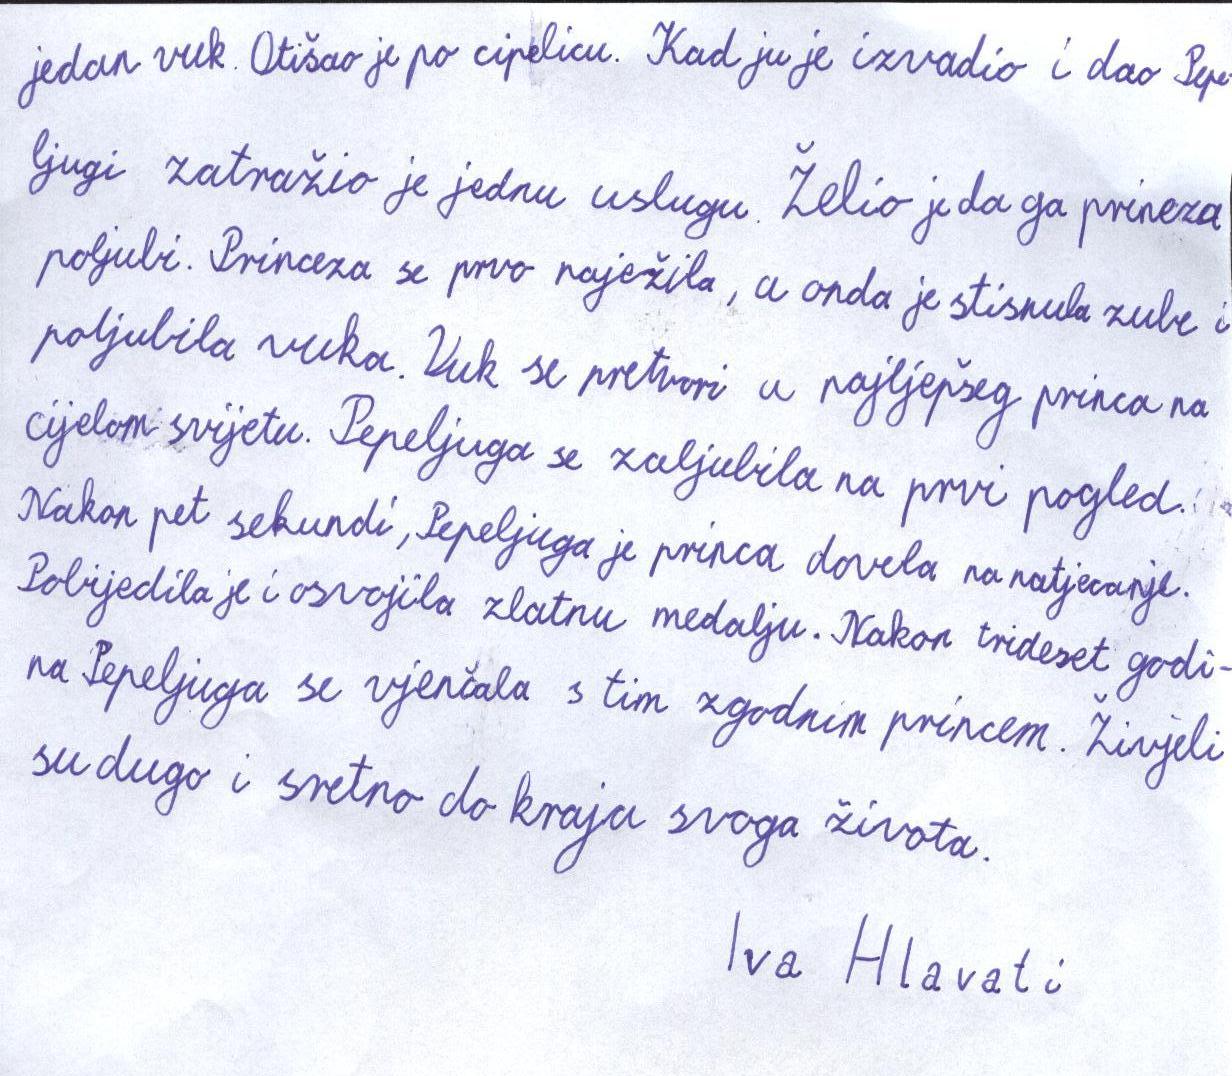 jedan vuk. Otišao je po cipelicu. Kad ju je izvadio i dao Pepe-
ljugi zatražio je jednu uslugu. Želio je da ga prineza
poljubi. Princeza se prvo naježila, a onda je stisnula zube i
poljubila vuka. Vuk se pretvori u najljepšeg princa na
cijelom svijetu. Pepeljuga se zaljubila na prvi pogled.
Nakon pet sekundi, Pepeljuga je princa dovela na natjecanje.
Pobijedila je i osvojila zlatnu medalju. Nakon trideset godi-
na Pepeljuga se vjenčala s tim zgodnim princem. Živjeli
su dugo i sretno do kraja svoga života.
Iva Hlavati